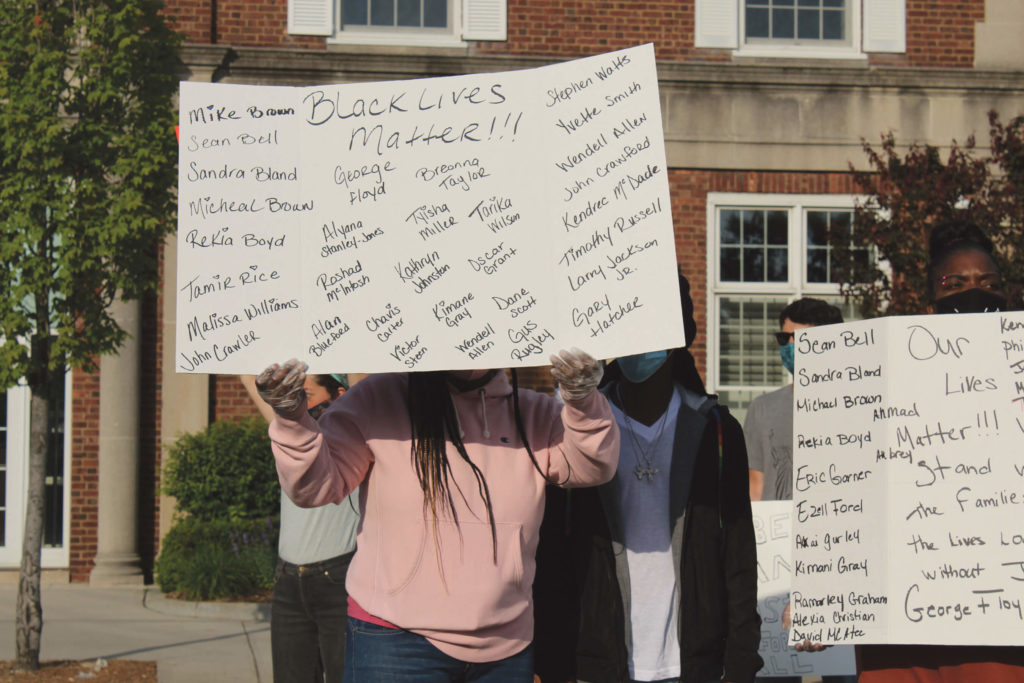 Mike Brown
Sean Bell
Sandra Bland
Micheal Brown
Rekia Boyd
Tamir Rice
Malissa Williams
John Crawler
Black Lives
Matter!!!
George
Floyd
Breonna
Taylor
Aiyana
Stanley-Jones
Tyisha
Miller
Tarika
Wilson
Rashad
McIntosh
Kathryn
Johnston
Oscar
Grant
Alan
Blueford
Chavis
Carter
Kimane
Gray
Dane
Scott
Victor
Steen
Wendell
Allen
Gus
Rugley
Stephen Watts
Yvette Smith
Wendell Allen
John Crawford
Kendrec McDade
Timothy Russell
Larry Jackson
Jr.
Gary
Hatcher
Sean Bell
Sandra Bland
Michael Brown
Ahmad
Rekia Boyd
Aubrey
Eric Garner
Ezell Ford
Akai gurley
Kimani Gray
Ramarley Graham
Alexia Christian
David McAtee
Our
Lives
Matter!!!
Stand
the Families
the Lives
without
George Floy